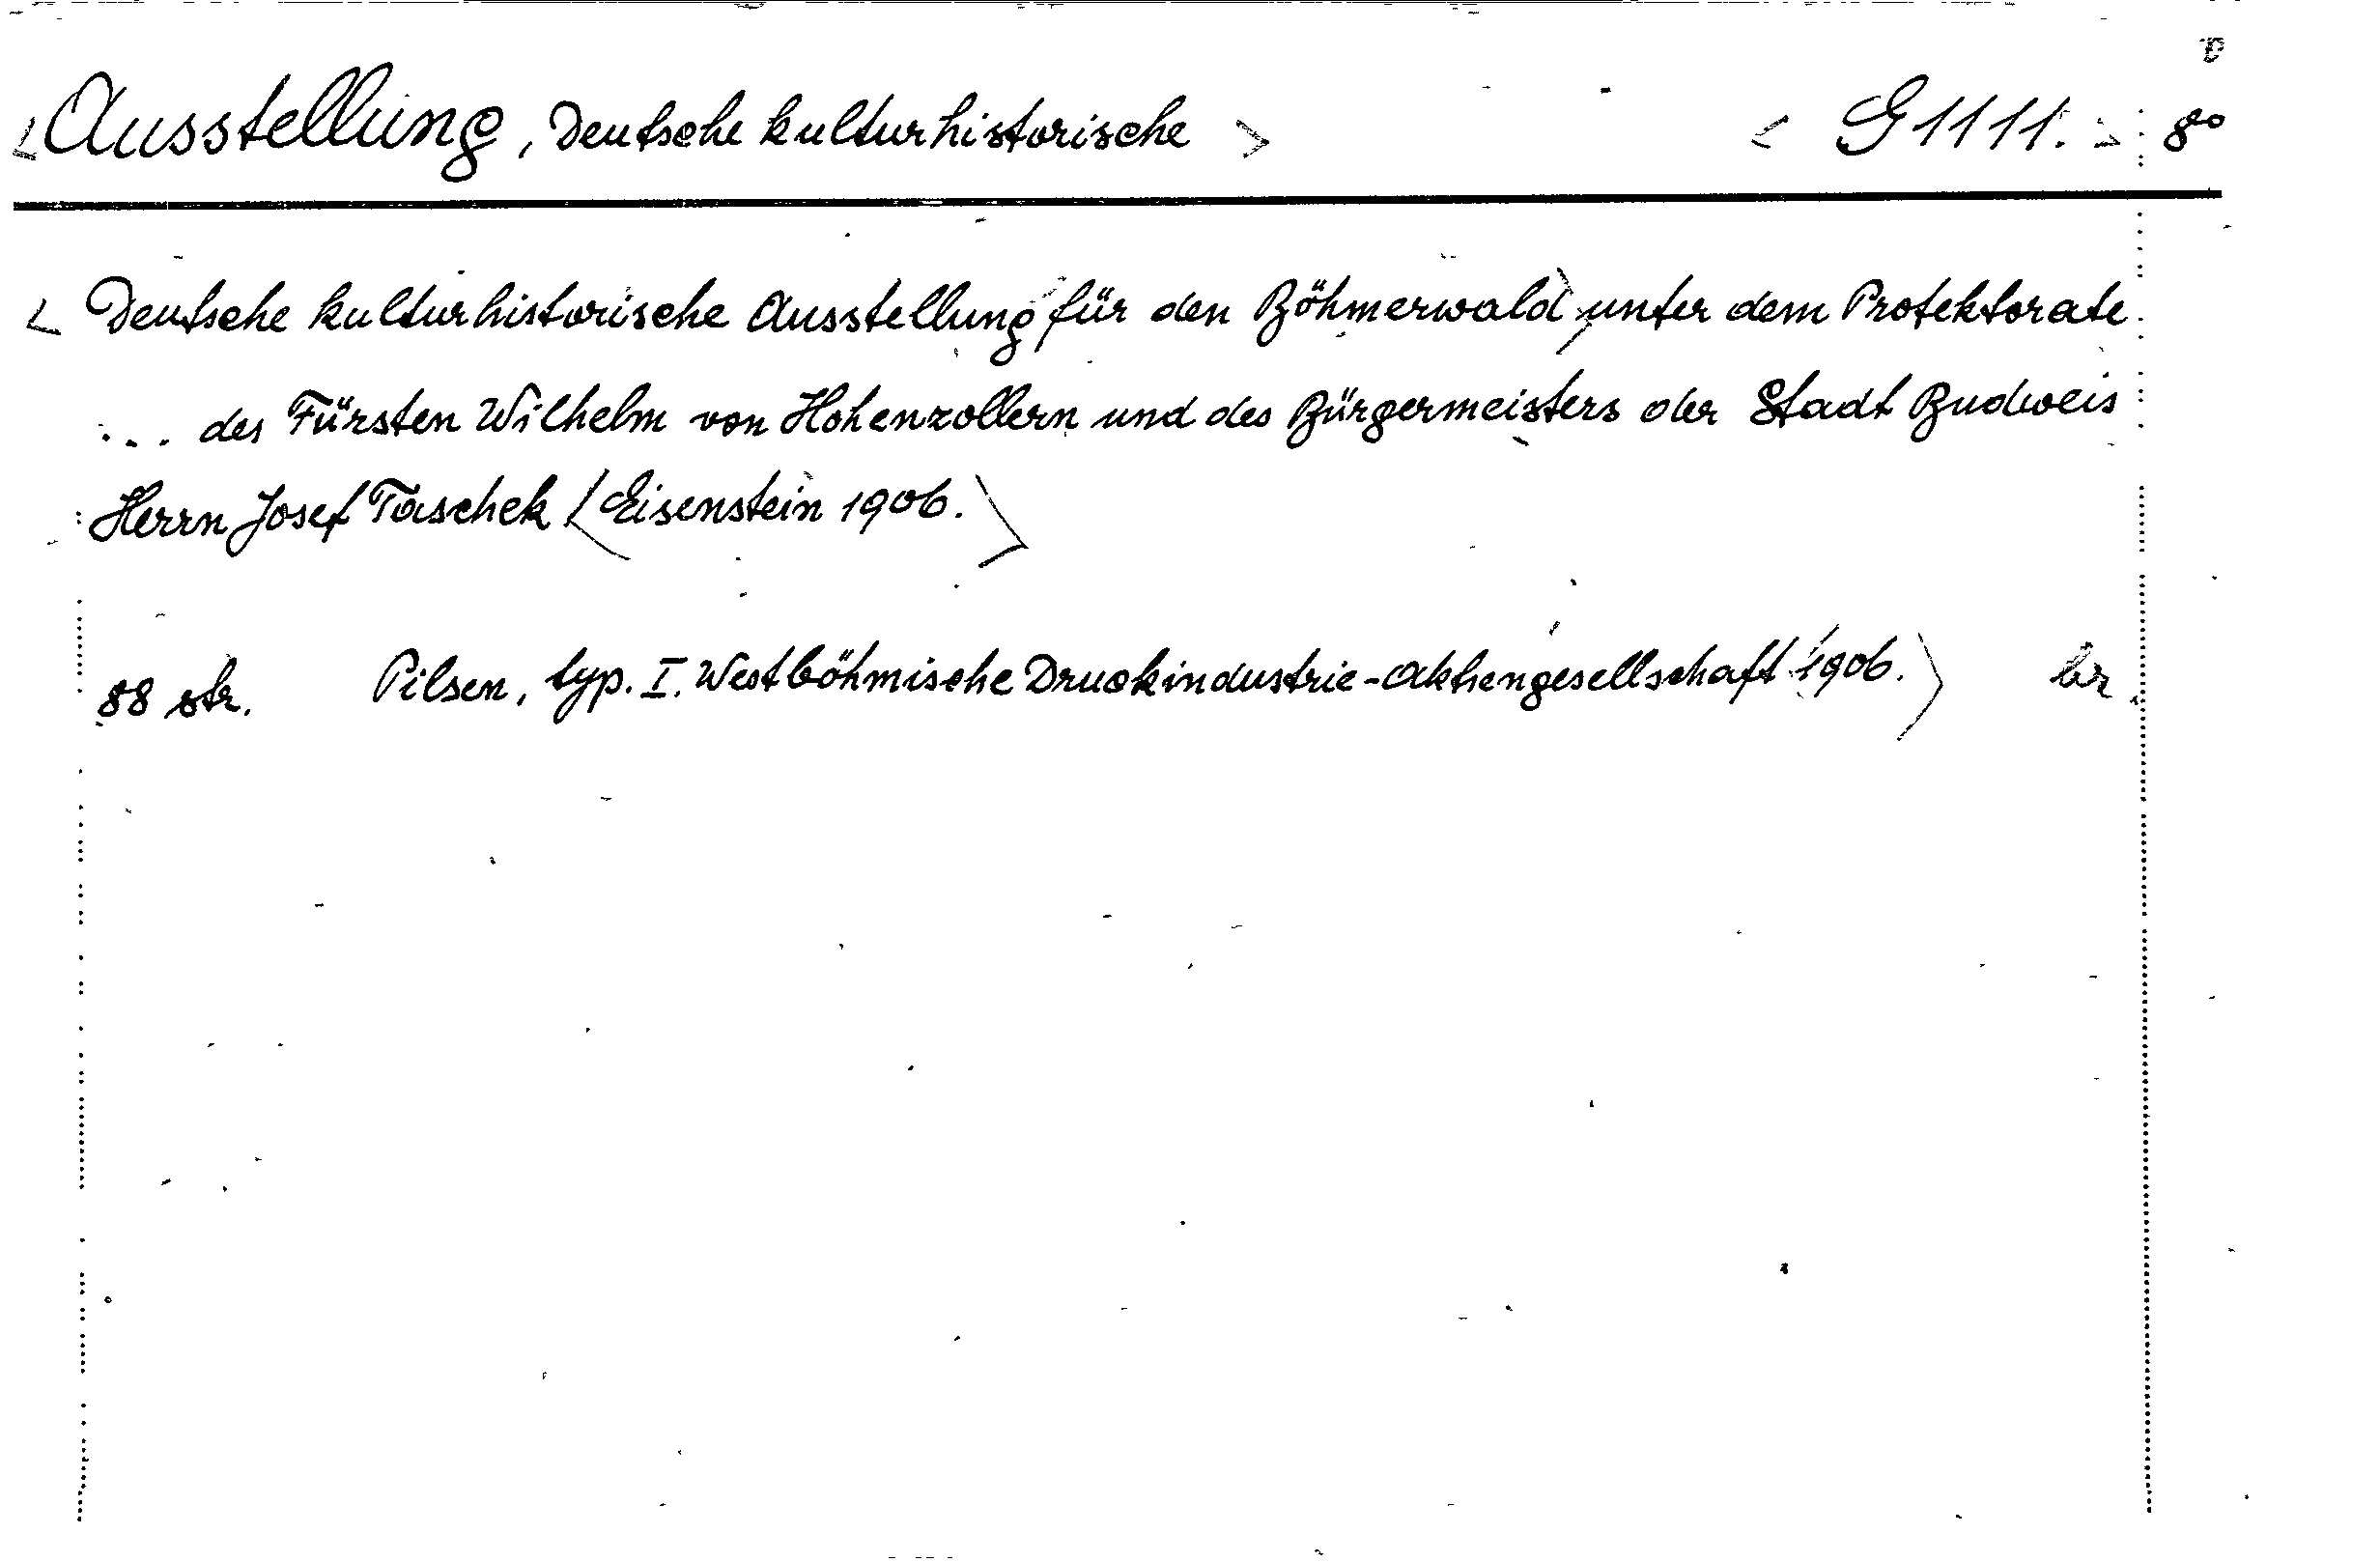 <Ausstellung, Deutsche kulturhistorische> <G 1111.> 8°
<Deutsche kulturhistorische Ausstellung für den Böhmerwald> unter dem Protektorate
... des Fürsten Wilhelm von Hohenzollern und des Bürgermeisters der Stadt Budweis
Herrn Josef Taschek <Eisenstein 1906.>
88 str. Pilsen, typ. I. Westböhmische Druckindustrie-Aktiengesellschaft 1906.> br.